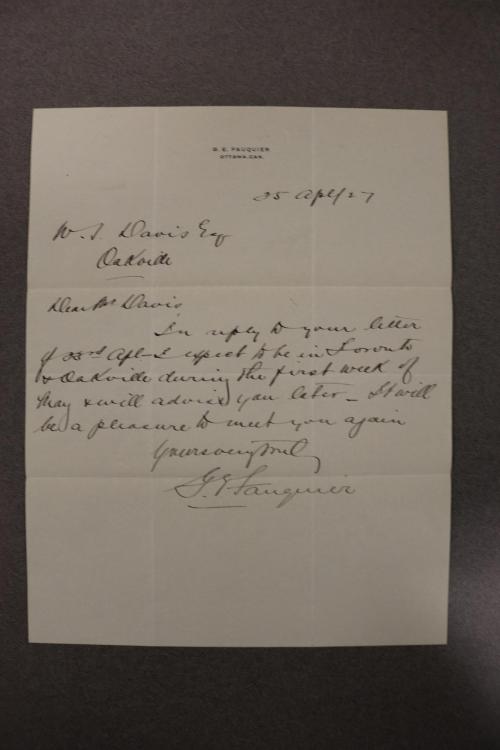 G. E. FAUQUIER
OTTAWA, CAN.
25 Apl/27
W. S. Davis Esq
Oakville
Dear Mr Davis
In reply to your letter
of 23rd Apl - I expect to be in Toronto
& Oakville during the first week of
May & will advise you later - It will
be a pleasure to meet you again
Yours very truly
G. E. Fauquier